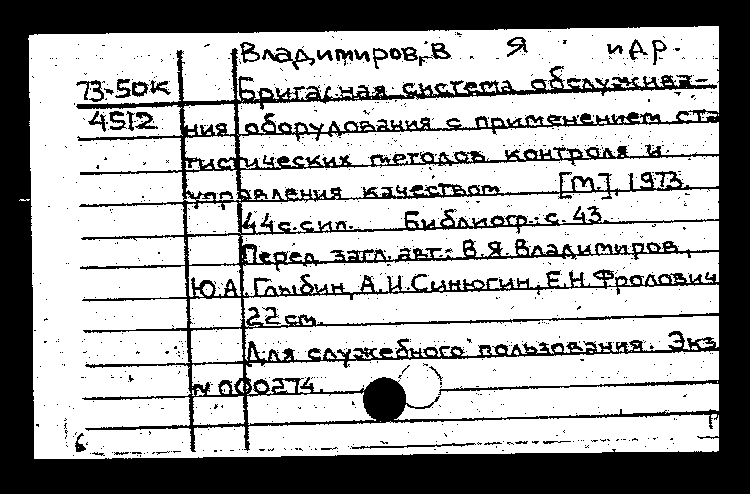 Владимиров, В Я и др.
73-50К Бригадная система обслужива-
4512 ния оборудования с применением ста
тистических методов контроля и
управления качеством [М.], 1973.
44с.с ил. Библиогр.: с. 43.
Перед загл. авт.: В.Я.Владимиров,
Ю.А.Глыбин, А.И.Синюгин, Е.Н.Фролович
22 см.
Для служебного пользования. Экз
N 000274.
6